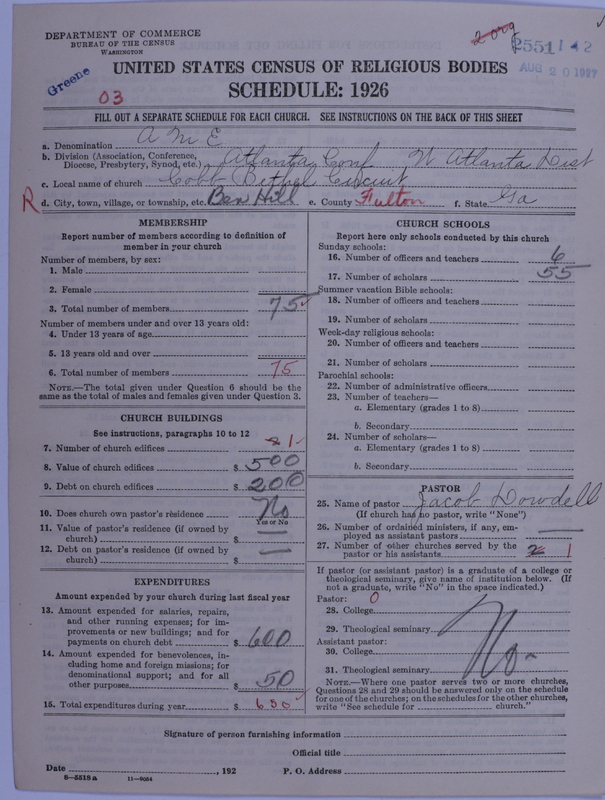 DEPARTMENT OF COMMERCE
BUREAU OF THE CENSUS
WASHINGTON
2 org
2551 1 42
AUG 20 1927
Greene
03
UNITED STATES CENSUS OF RELIGIOUS BODIES
SCHEDULE: 1926
FILL OUT A SEPARATE SCHEDULE FOR EACH CHURCH. SEE INSTRUCTIONS ON THE BACK OF THIS SHEET
a. Denomination A M E
b. Division (Association, Conference,
Diocese, Presbytery, Synod, etc.) Atlanta Conf W Atlanta Dist
c. Local name of church Cobb Bethel Circuit
R d. City, town, village, or township, etc. Ben Hill e. County Fulton f. State Ga
MEMBERSHIP
Report number of members according to definition of
member in your church
Number of members, by sex:
1. Male
2. Female
3. Total number of members 75
Number of members under and over 13 years old:
4. Under 13 years of age
5. 13 years old and over
6. Total number of members 75
NOTE.—The total given under Question 6 should be the
same as the total of males and females given under Question 3.
CHURCH BUILDINGS
See instructions, paragraphs 10 to 12
7. Number of church edifices 1
8. Value of church edifices $ 500
9. Debt on church edifices $ 200
10. Does church own pastor's residence No
Yes or No
11. Value of pastor's residence (if owned by
church) $ —
12. Debt on pastor's residence (if owned by
church) $ —
EXPENDITURES
Amount expended by your church during last fiscal year
13. Amount expended for salaries, repairs,
and other running expenses; for im-
provements or new buildings; and for
payments on church debt $ 600
14. Amount expended for benevolences, in-
cluding home and foreign missions; for
denominational support; and for all
other purposes $ 50
15. Total expenditures during year $ 650
CHURCH SCHOOLS
Report here only schools conducted by this church
Sunday schools:
16. Number of officers and teachers 6
17. Number of scholars 55
Summer vacation Bible schools:
18. Number of officers and teachers
19. Number of scholars
Week-day religious schools:
20. Number of officers and teachers
21. Number of scholars
Parochial schools:
22. Number of administrative officers
23. Number of teachers—
a. Elementary (grades 1 to 8)
b. Secondary
24. Number of scholars—
a. Elementary (grades 1 to 8)
b. Secondary
PASTOR
25. Name of pastor Jacob Dowdell
(If church has no pastor, write "None")
26. Number of ordained ministers, if any, em-
ployed as assistant pastors
27. Number of other churches served by the
pastor or his assistants 2 1
If pastor (or assistant pastor) is a graduate of a college or
theological seminary, give name of institution below. (If
not a graduate, write "No" in the space indicated.)
Pastor: 0
28. College
29. Theological seminary No
Assistant pastor:
30. College
31. Theological seminary
NOTE.—Where one pastor serves two or more churches,
Questions 28 and 29 should be answered only on the schedule
for one of the churches; on the schedules for the other churches,
write "See schedule for church."
Signature of person furnishing information
Official title
Date , 192 P. O. Address
8—5518a 11—9054